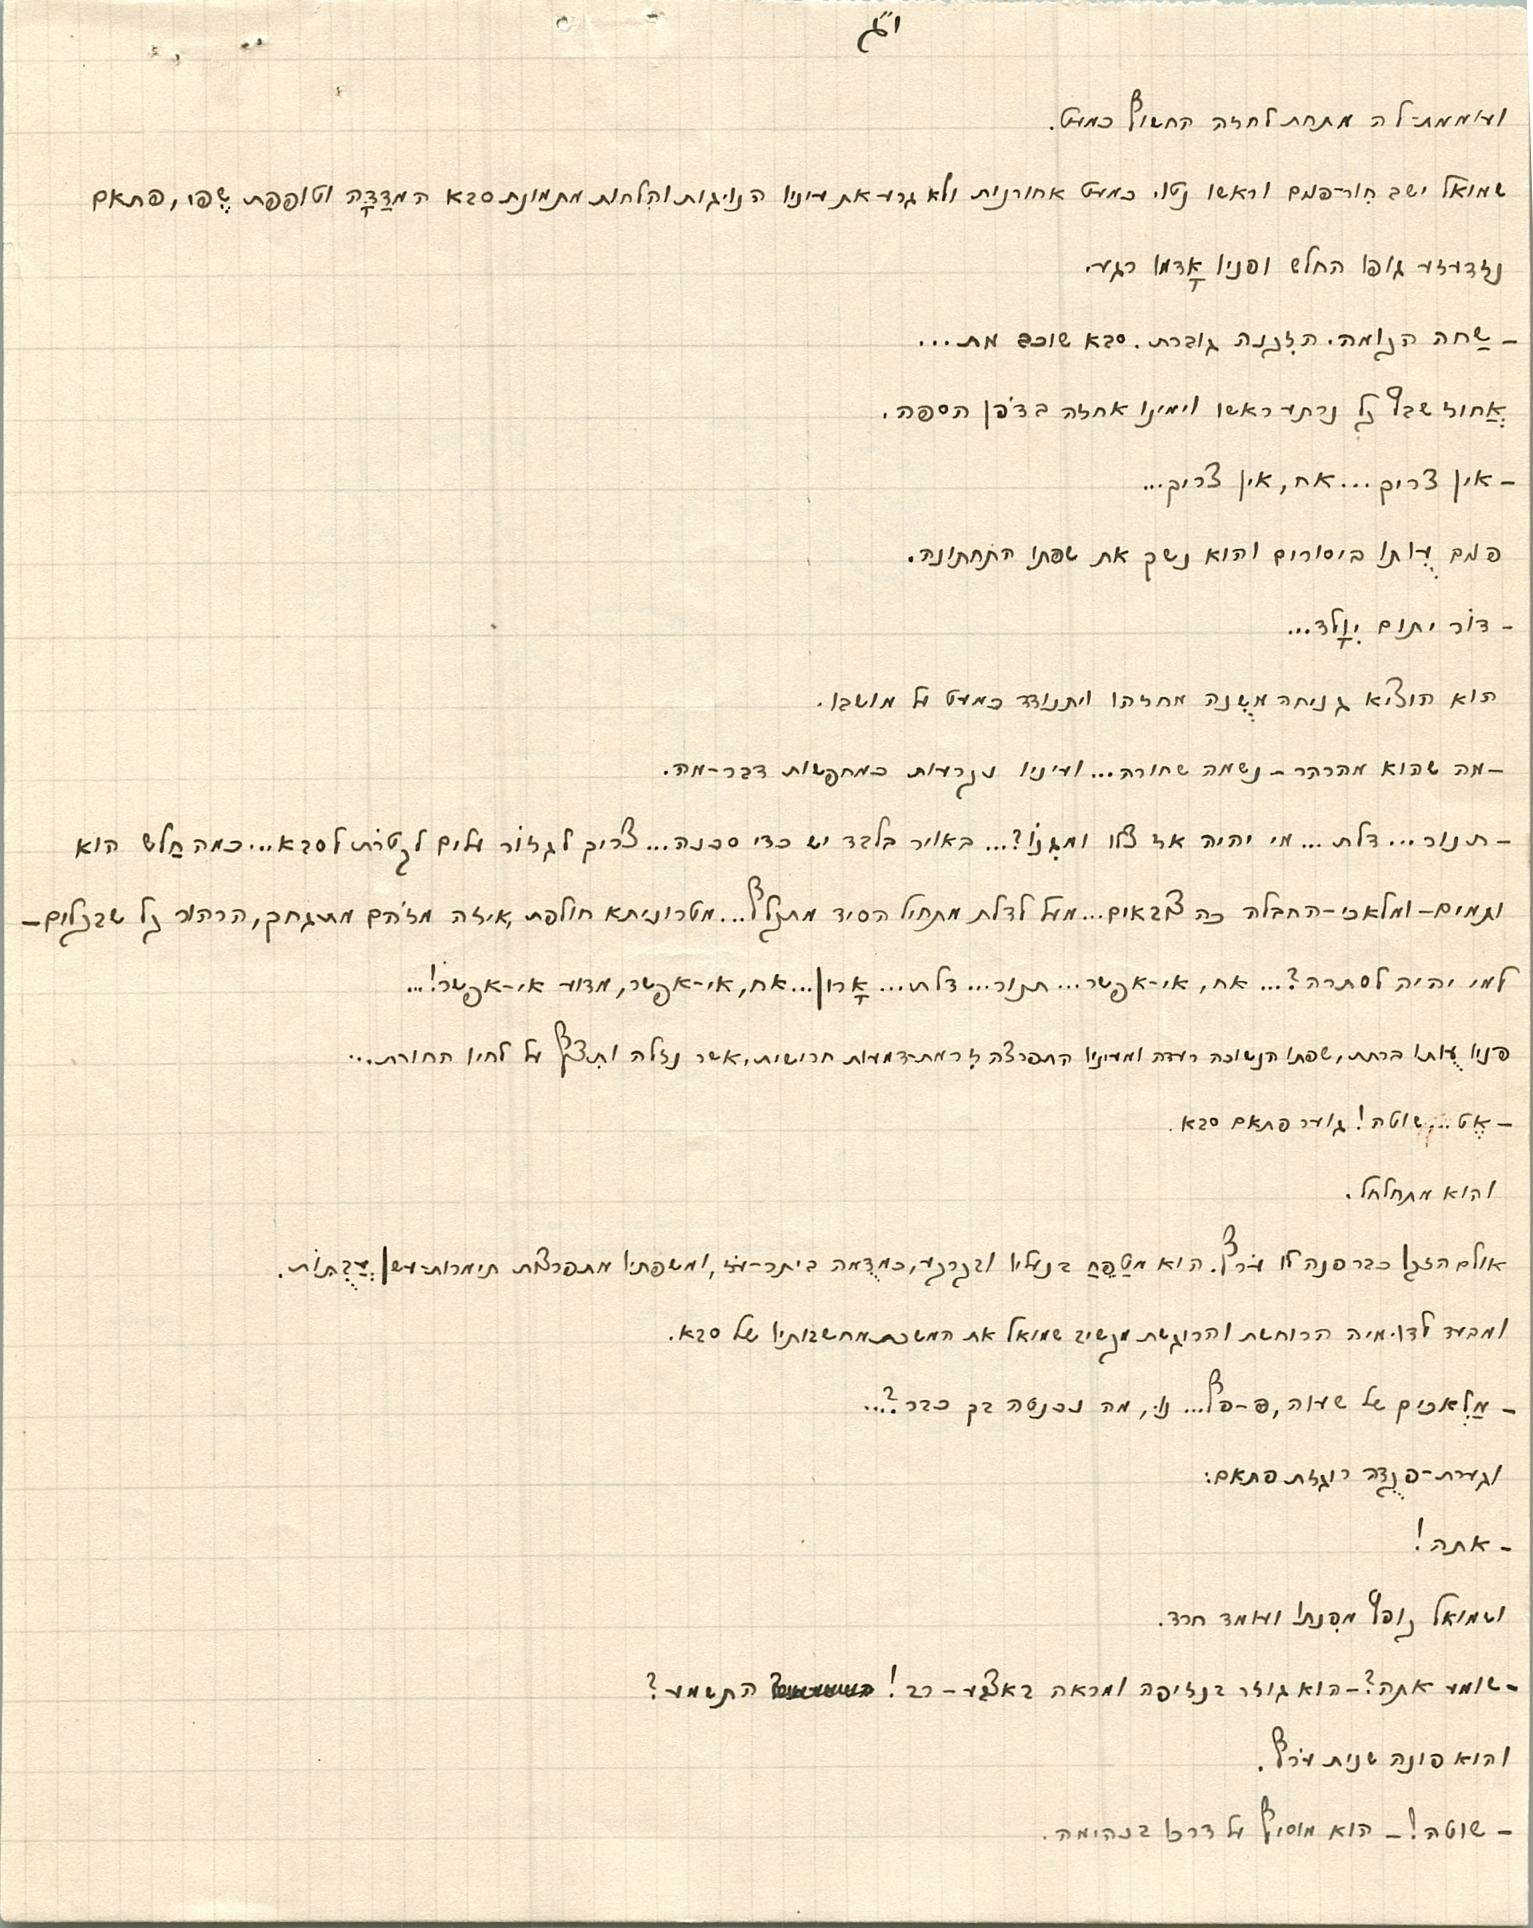 י"ג
ועוממת-לה מתחת לחזה החשוף כמעט.
שמואל ישב חִור-פנים וראשו נטוי כמעט אחורנית ולא גרע את עיניו הנוגות והלחות מתמונת סבא המדַדָה וטופפת שֶפי, פתאם
נזדעזע גופו החלש ופניו אָדמו רגע.
– שַחה הקומה. הזִקנה גוברת. סבא שוכב מת...
אֲחוז שבץ קל נרתע ראשו וימינו אחזה בדֹפן הספה.
– אין צריך... אח, אין צריך...
פנים עֻותו ביסורים והוא נשך את שפתו התחתונה.
– דוֹר יתום יִוָלד...
הוא הוציא גניחה מְשֻנה מחזהו ויתנודד כמעט על מושבו.
– מה שהוא מהרהר – נשמה שחורה... ועיניו נקרעות כמחפשות דבר-מה.
– תנור... דלת... מי יהיה אז צלו ומגִנוֹ?... באויר בלבד יש כדי סכנה... צריך לגזוֹר עלים לקטֹרת לסבא... כמה חַלש הוא
ותמים – ומלאכי-החבלה כה צבאים... מעל לדלת מתחיל הסיד מתקלף... מטרוניתא חולפת, איזה מזֹהם מתגחך, הרהור קל שבקלים –
למי יהיה לסתרה?... אח, אי-אפשר... תנור... דלת... אָרון... אח, אי-אפשר, מדוע אי-אפשר!...
פניו עֻותו ברתת, שפתו הנשוכה רעדה ומעיניו התפרצה זִרמת-דמעות חרישית, אשר נזלה ותִצף על לחיו החורת...
– אֶט... שוטה! גוער פתאם סבא.
והוא מתחלחל.
אולם הזקן כבר פנה לו עֹרף. הוא מטַפֵחַ בנעליו ובקרקע, כמְדֻמה ביתר-עֹז, ומשפתיו מתפרצת תימרות-עשן עֲבֻתּוֹת.
ומבעד לדו-מיה הרוחשת והרוגשת מקשיב שמואל את המשכת מחשבותיו של סבא.
– מַלְאכים של שעוה, פ-פף... נו, מה נכנסה בך כבר?...
וגערת-פְקֻדה רוגזת פתאם:
– אתה!
ושמואל קופץ מפִנתו ועומד חרד.
– שומע אתה? – הוא גוזר בנזיפה ומראה באצבע – רב! התשמע?
והוא פונה שנית עֹרף.
– שוטה! – הוא מוסיף על דרכו בנהימה.